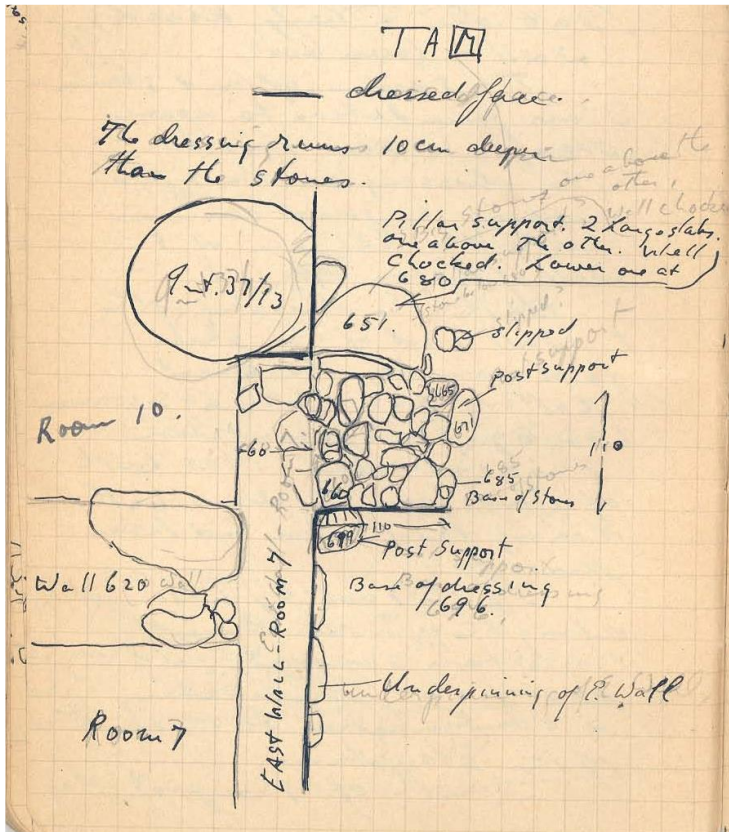 TA M
dressed face.
The dressing runs 10cm deeper
than the stones.
Pillar support. 2 Large slabs.
one above the other. Well
Chocked. Lower one at
680
37/13
651.
Slipped
Post Support
665
671
Room 10.
110
660
685
Base of Stones
110
699
Post Support
Wall 620
Base of dressing
696.
EAST WALL - ROOM 7
Underpinning of E. Wall
Room 7